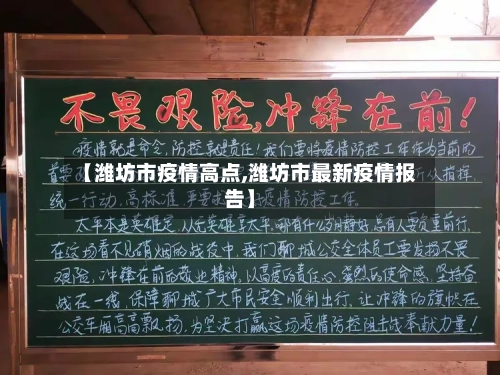 不畏艰险,冲锋在前!
疫情就是命令,防控就是责任!我们要将疫情防控工作作为当前的
首要
【潍坊市疫情高点,潍坊市最新疫情报
告】
听从指挥
统一行动,高标准,严要求
疫情防控工作.
太平本是英雄定,从无英雄享太平.哪有什么岁月静好,总有人要负重前行,
在这场看不见硝烟的战役中,我们聊城公交全体员工要发扬不畏
艰险,冲锋在前的敬业精神,以高度的责任心,强烈的使命感,坚持奋
战在一线,保障聊城广大市民安全顺利出行,让冲锋的旗帜在
公交车厢高高飘扬,为坚决打赢这场疫情防控阻击战奉献力量!